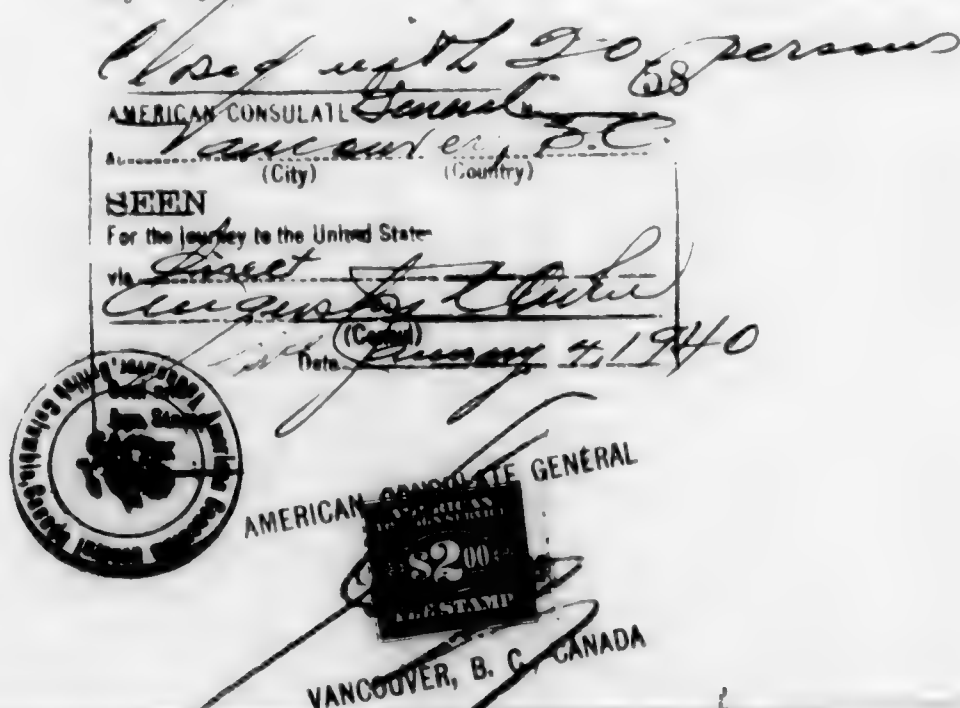 Closed with 20 persons
58
AMERICAN CONSULATE General
Vancouver, B.C.
(City) (Country)
SEEN
For the journey to the United States
via Direct
(Consul)
Date January 4, 1940
AMERICAN CONSULATE GENERAL
AMERICAN
$2.00
FEE STAMP
VANCOUVER, B. C., CANADA